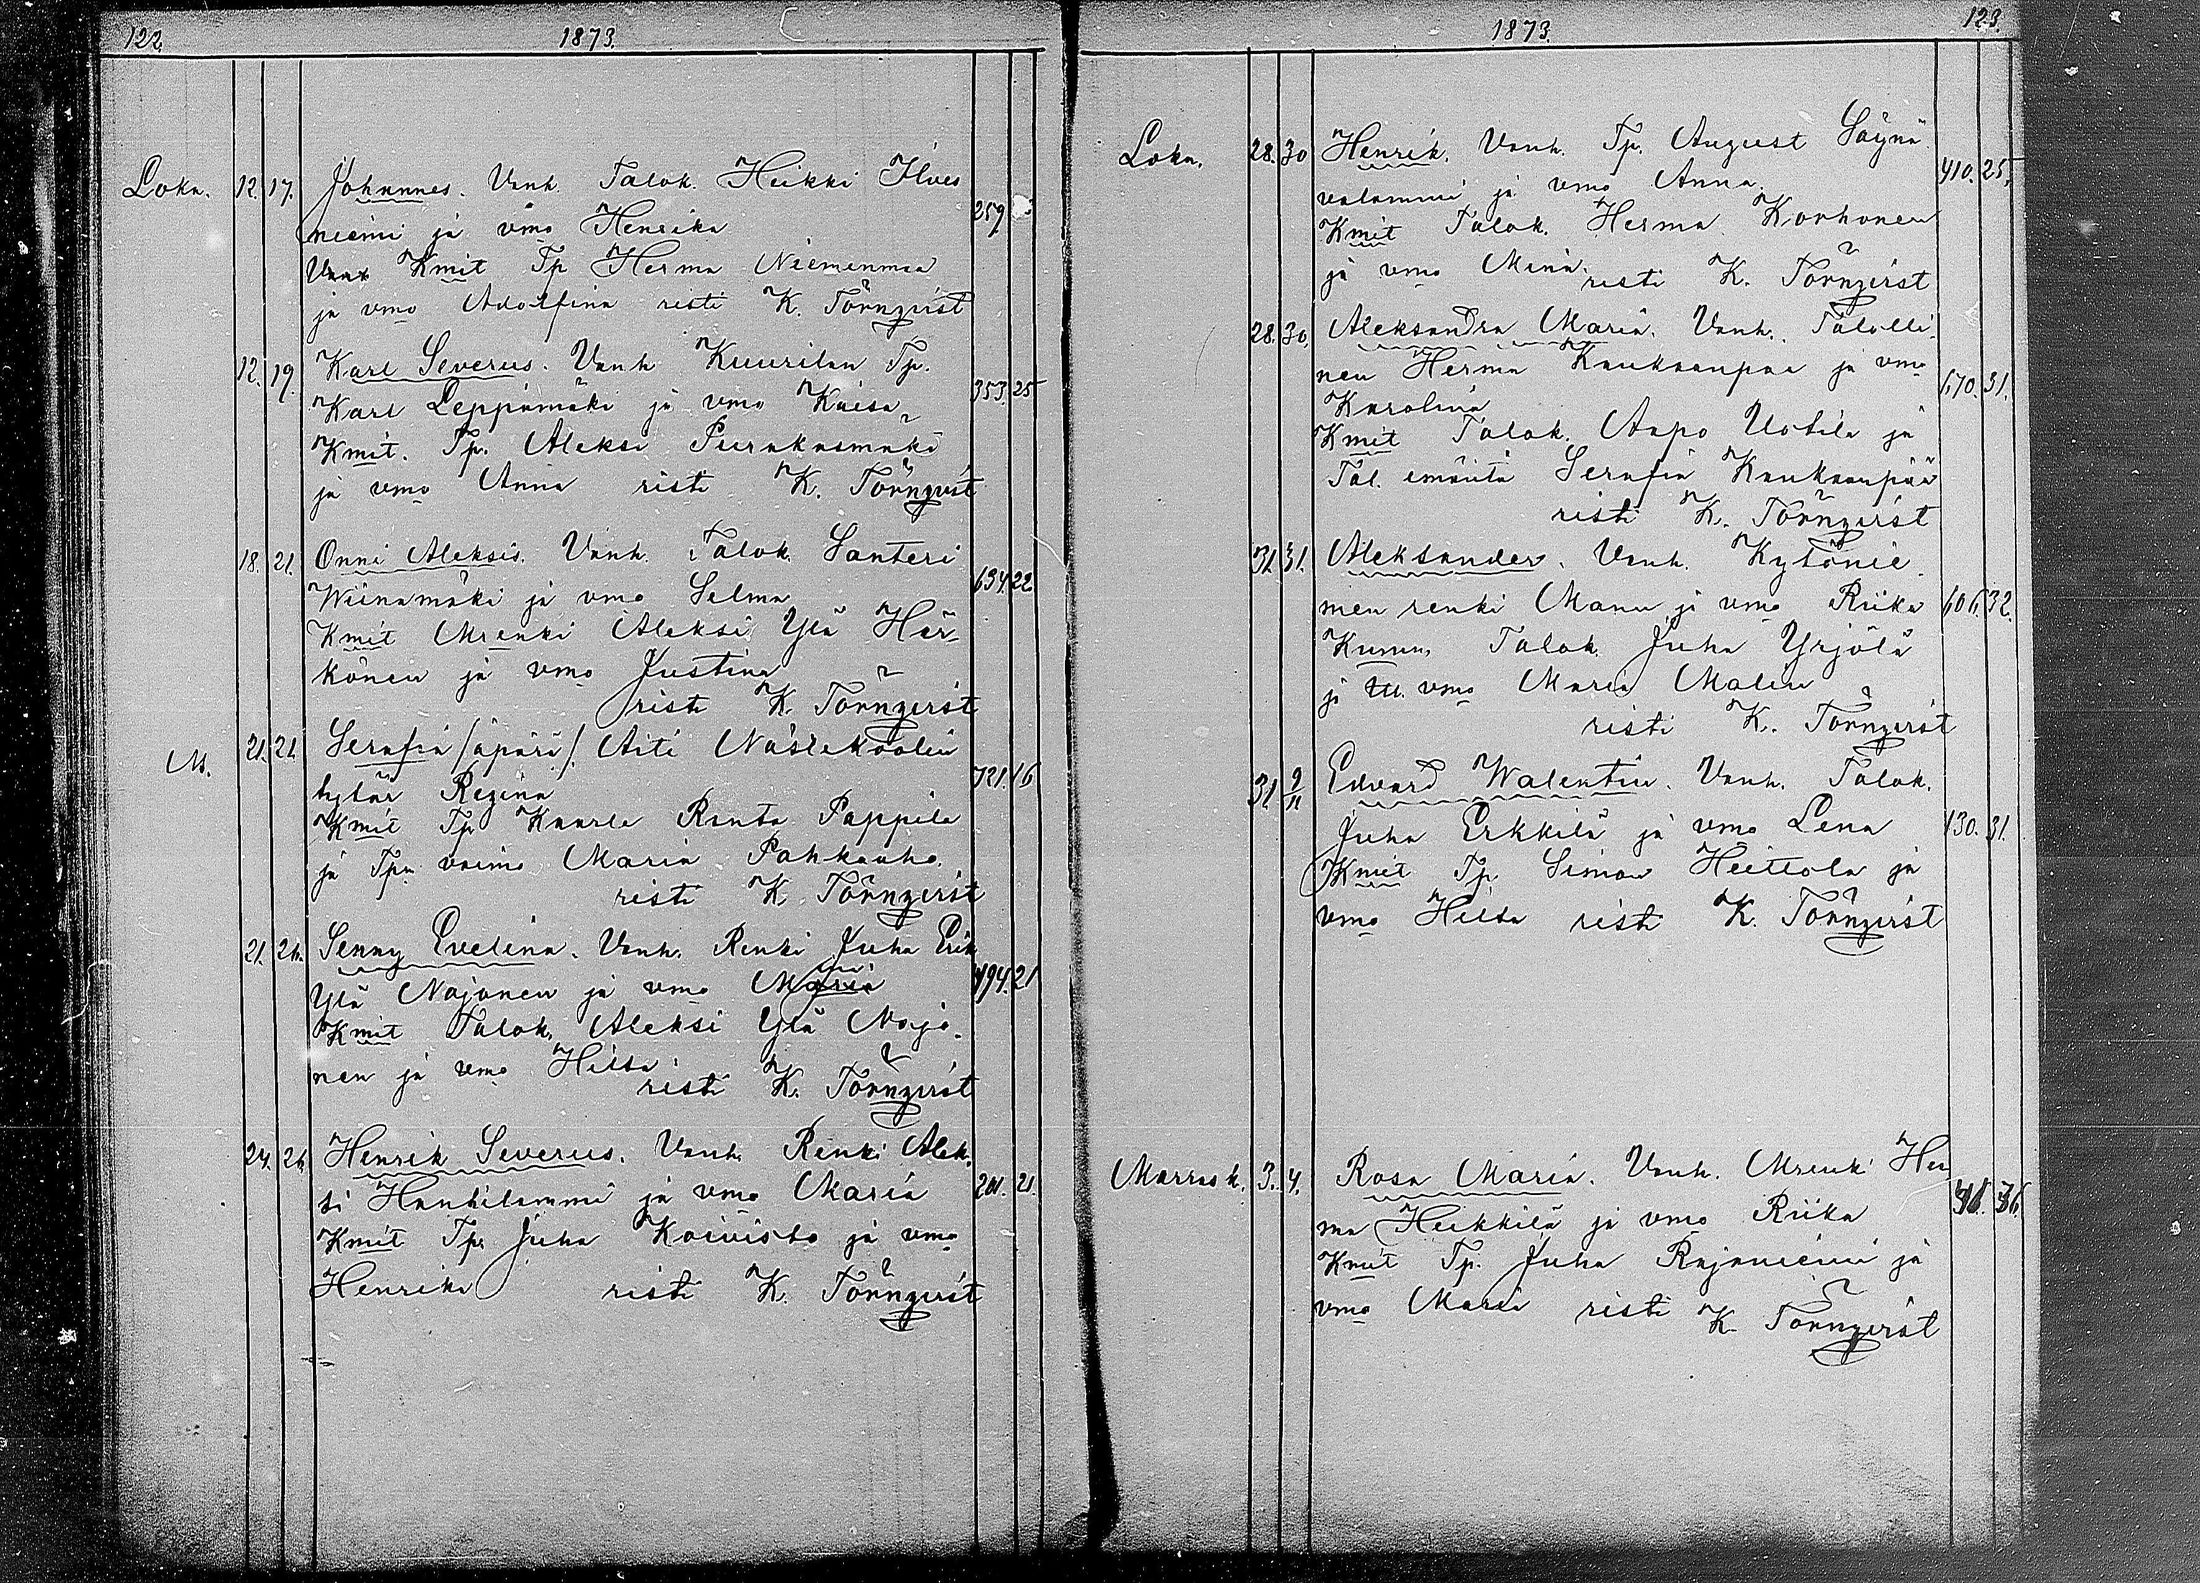 122. 1873.
Loka. 12. 17. Johannes. Vanh. Talok. Heikki Ilves
niemi ja vmo Henrika 259
Kmit Tp Herma Niemenmaa
ja vmo Adolfina risti K. Törnqvist
12. 19. Karl Severus. Vanh Kuurilan Tp.
Karl Leppämäki ja vmo Kaisa 353. 25
Kmit. Tp. Aleksi Purakasmäki
ja vmo Anna risti K. Törnqvist
18. 21. Onni Aleksis. Vanh. Talok. Santeri
Wiinamäki ja vmo Selma 634. 22
Kmit Mrenki Aleksi Ylä Här-
könen ja vmo Justina
risti K. Törnqvist
M. 21. 21. Serafia /äpärä/. Äiti
tytär Regina 721. 16
Kmit Tp Kaarle Ranta Pappila
ja Tpn vaimo Maria Pahkaaho.
risti K. Törnqvist
21. 26. Senny Evelina. Vanh. Renki Juha Erik
Ylä Nojonen ja vmo Maria 494. 21
Kmit Talok. Aleksi Ylä Nojo-
nen ja vmo Hilta
risti K. Törnqvist
24. 26 Henrik Severus. Vanh. Renki Alek-
si Hanhilammi ja vmo Maria 201. 21.
Kmit Tp. Juha Koivisto ja vmo
Henrika risti K. Törnqvist
1873. 123.
Loka. 28. 30 Henrik. Vanh. Tp. August Säynä
valammi ja vmo Anna. 410. 25.
Kmit Talok. Herma Korhonen
ja vmo Miina. risti K. Törnqvist
28. 30. Aleksandra Maria. Vanh. Talolli
nen Herma Kaukaanpää ja vmo 670. 31.
Karolina
Kmit Talok. Aapo Uotila ja
Tal. emäntä Serafia Kaukaanpää
risti K. Törnqvist
31. 31. Aleksander. Vanh. Kytönie
men renki Manu ja vmo Riika 606. 32.
Kumm. Talok. Juha Yrjölä
ja vmo Maria Malen
risti K. Törnqvist
31. 9/11 Edvard Walentin. Vanh. Talok.
Juha Erkkilä ja vmo Lena 130. 31.
Kmit Tp. Simon Heittola ja
vmo Hilta risti K. Törnqvist
Marrask. 3. 4. Rosa Maria. Vanh. Mrenki Her
ma Heikkilä ja vmo Riika
Kmit Tp. Juha Rajaniemi ja
vmo Maria risti K. Törnqvist